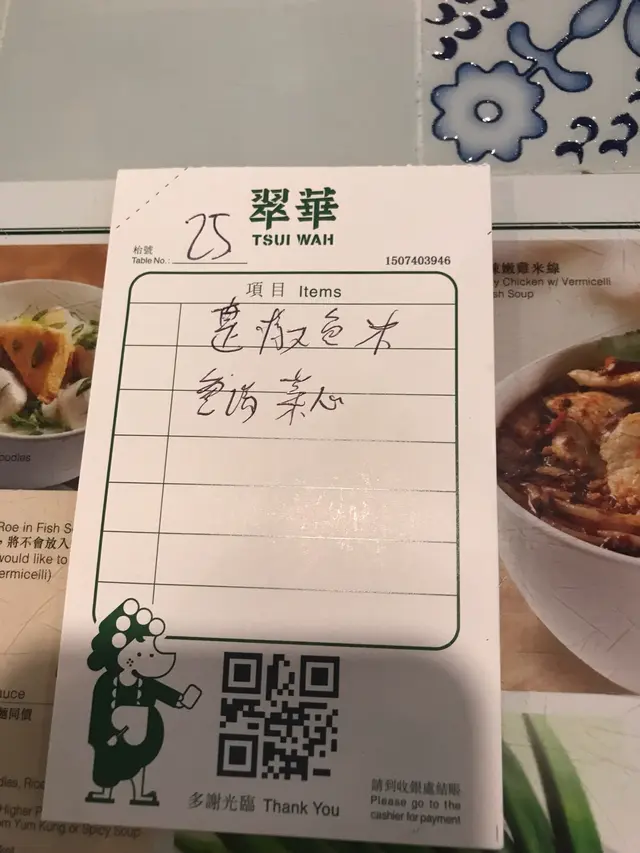 翠華
TSUI WAH
枱號
Table No.: 25
1507403946
項目 Items
菜心
多謝光臨 Thank You
請到收銀處結賬
Please go to the
cashier for payment
辣嫩雞米線
y Chicken w/ Vermicelli
sh Soup
oodles
Roe in Fish S
，將不會放入
would like to
ermicelli)
auce
麵同價
dles, Rice
Higher P
om Yum Kung or Spicy Soup